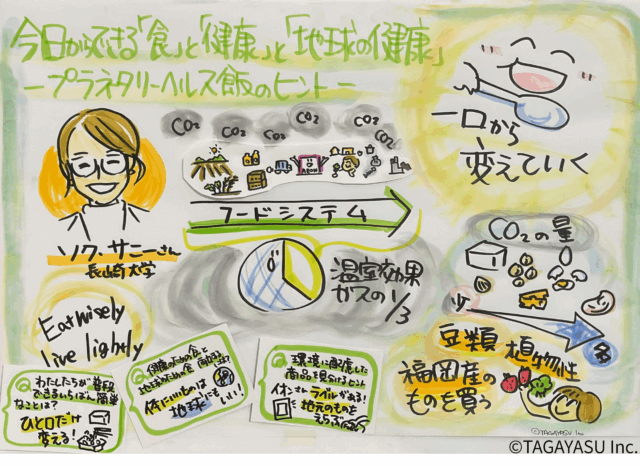 今日からできる「食」と「健康」と「地球の健康」
ープラネタリーヘルス飯のヒントー
CO₂ CO₂ CO₂ CO₂ CO₂ CO₂
フードシステム
ソク・サニーさん
長崎大学
温室効果
ガスの1/3
一口から
変えていく
CO₂の量
少
多
豆類 植物性
福岡産の
ものを買う
Eat wisely
live lightly
Q わたしたちが普段
できるいちばん簡単
なことは?
ひと口だけ
変える!
Q 健康のための食と
地球のための食
体にいいものは
地球にもいい!
Q 環境に配慮した
商品を見分けるヒント
ラベルがある!
地元のものを
えらぶ
©TAGAYASU Inc
©TAGAYASU Inc.